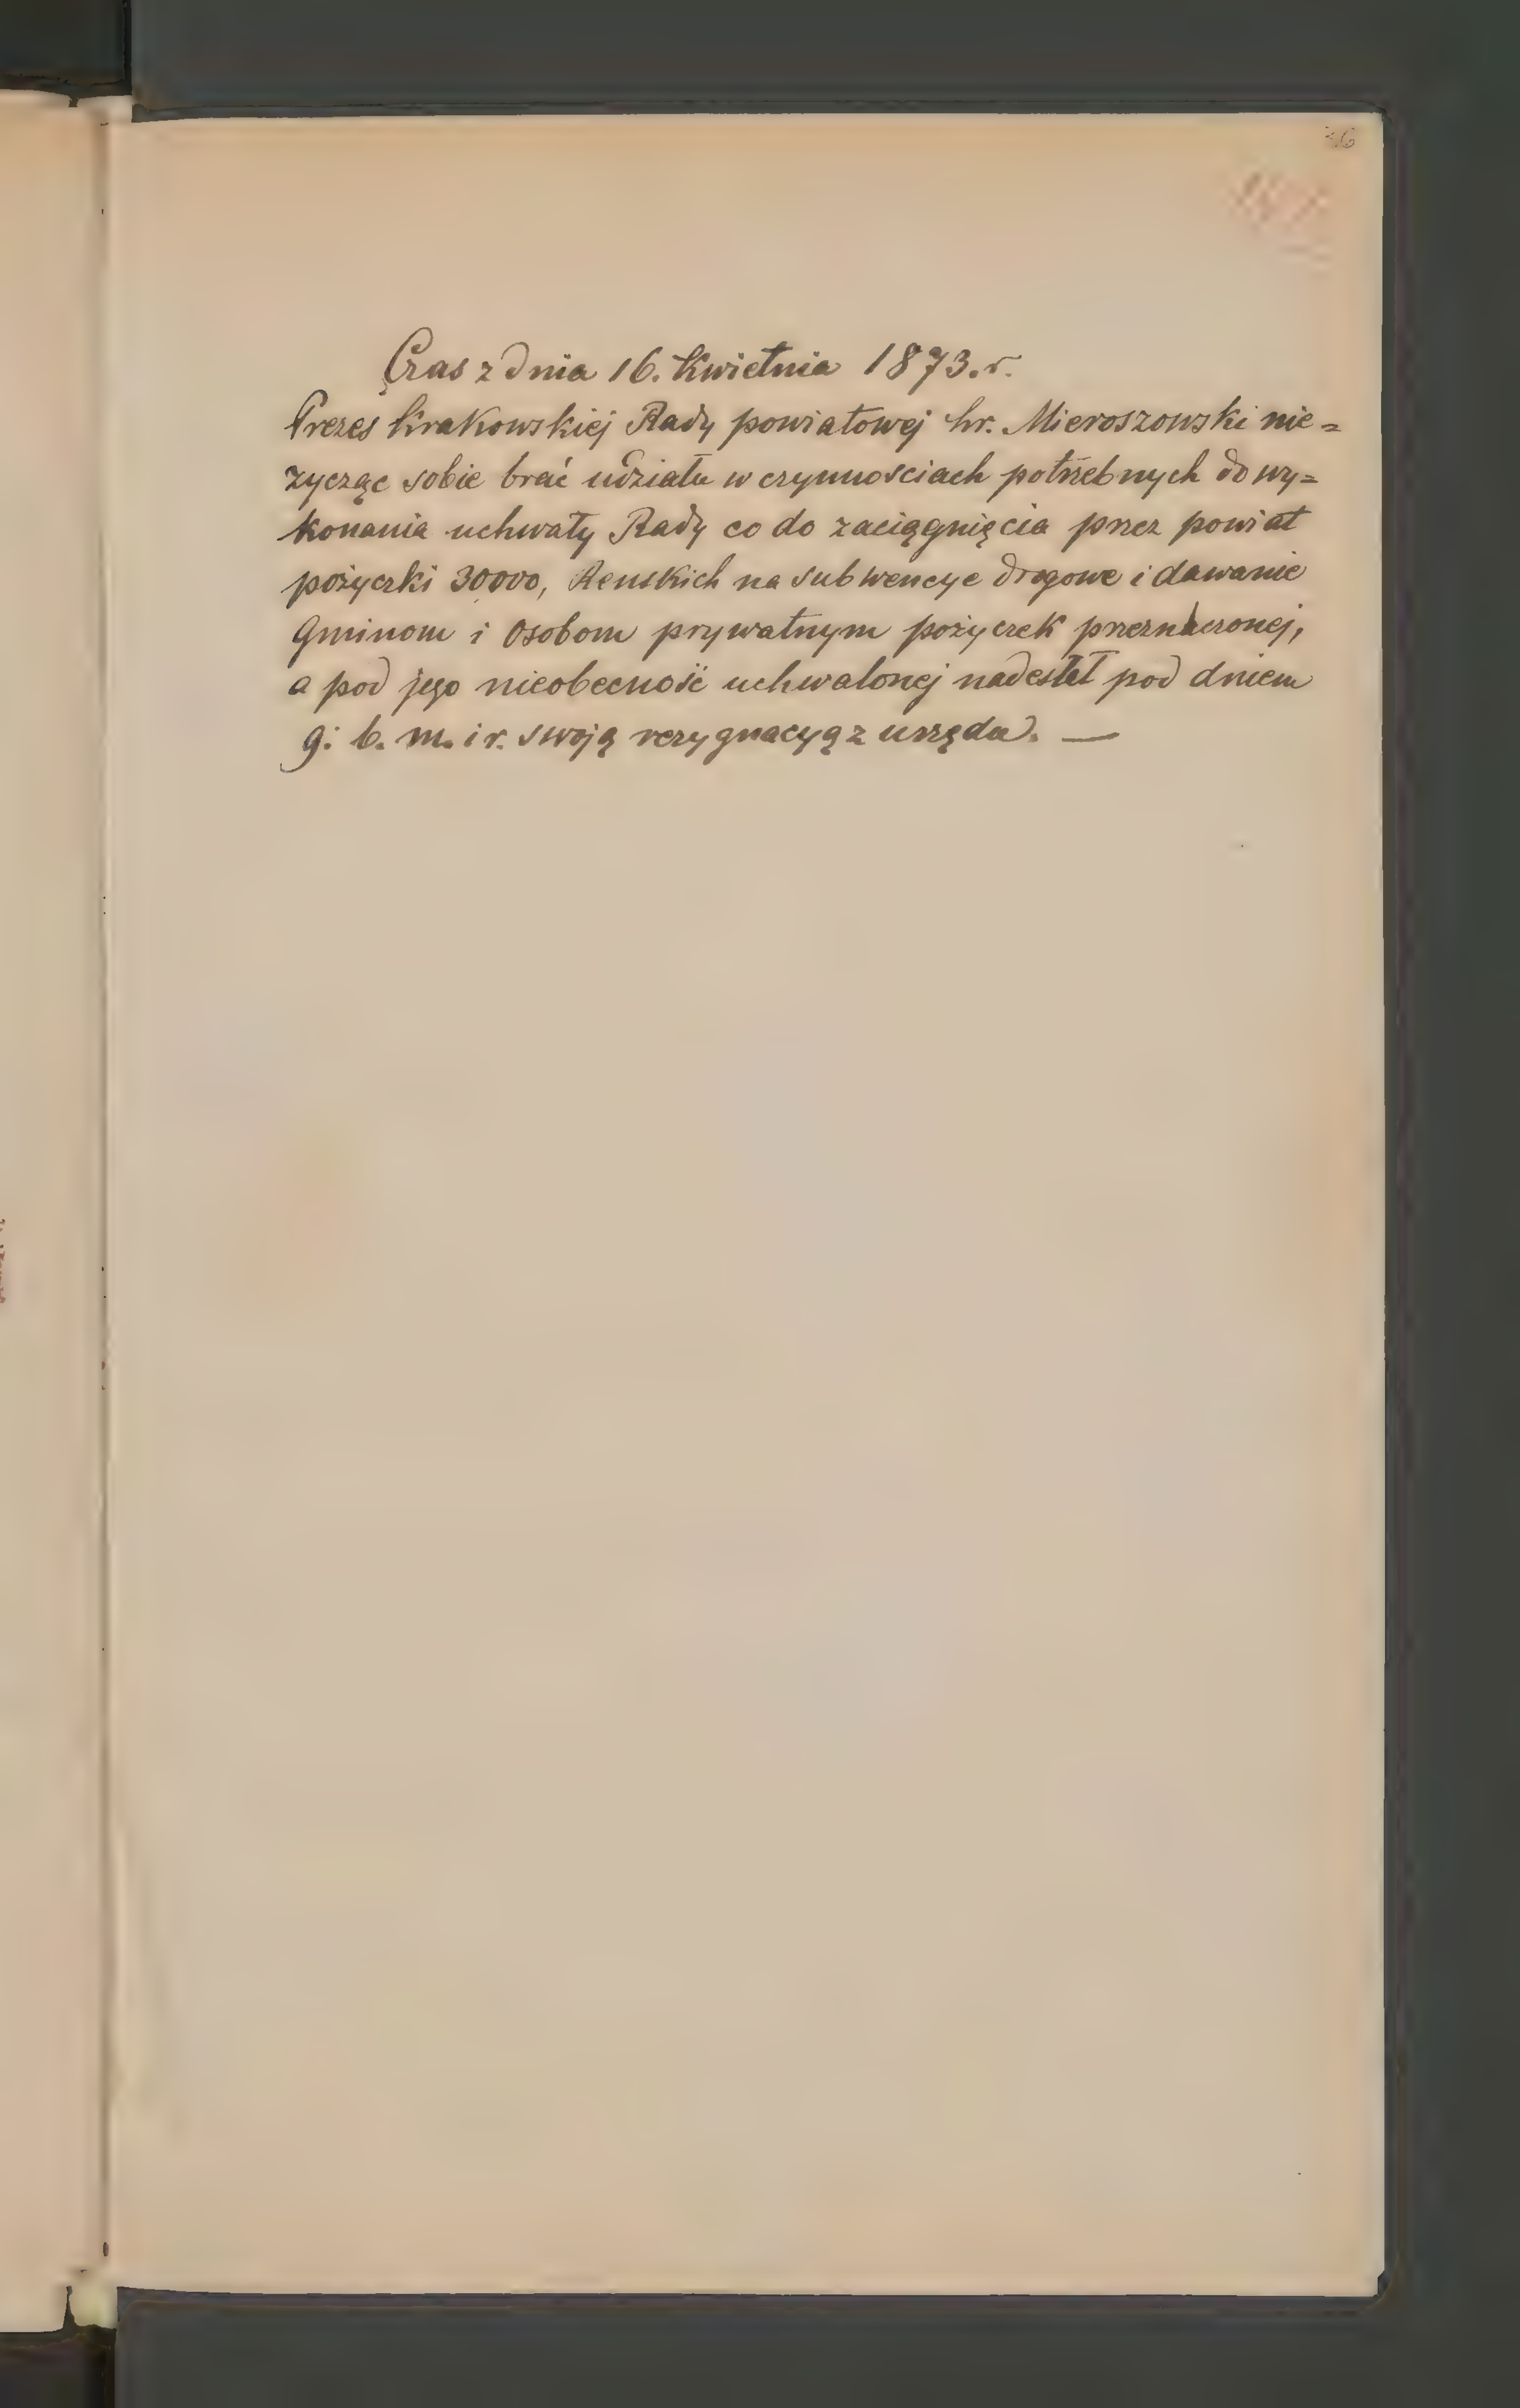 36
Czas z dnia 16. Kwietnia 1873. r.
Prezes Krakowskiej Rady powiatowej hr. Mieroszowski nie=
zycząc sobie brać udziału w czynnosciach potrzebnych do wy=
konania uchwały Rady co do zaciągnięcia przez powiat
pożyczki 30000, Renskich na subwencye drogowe i dawanie
Gminom i Osobom prywatnym pożyczek przeznaczonej,
a pod jego nieobecność uchwalonej nadesłał pod dniem
9. b. m. i r. swoją rezygnacyą z urzędu. —